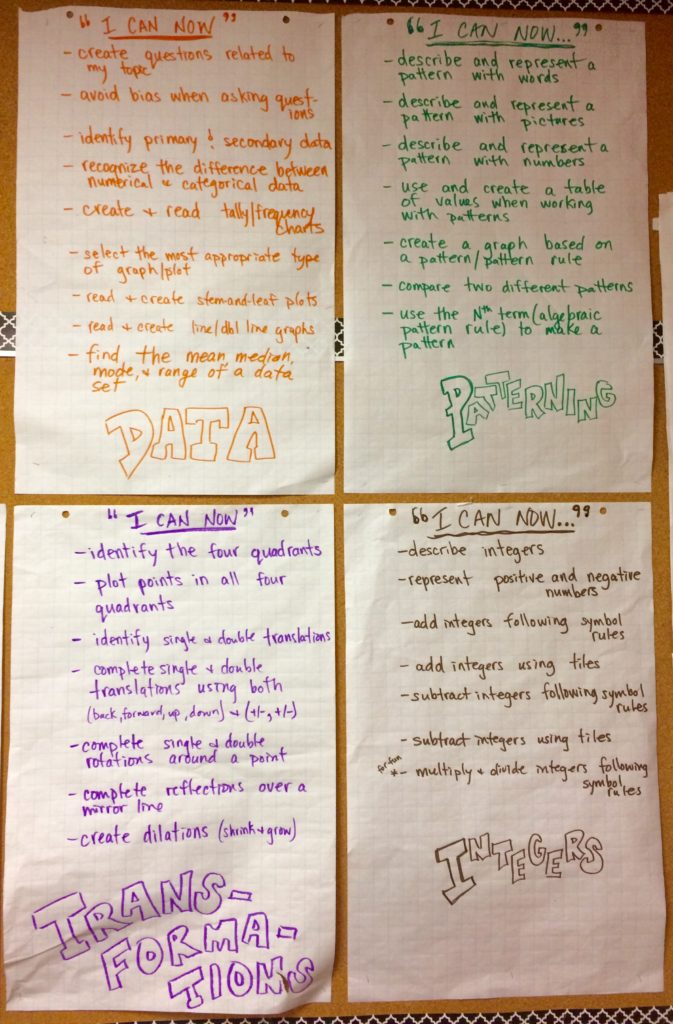 "I CAN NOW"
- create questions related to
my topic
- avoid bias when asking quest-
ions
- identify primary & secondary data
- recognize the difference between
numerical & categorical data
- create & read tally/frequency
charts
- select the most appropriate type
of graph/plot
- read & create stem-and-leaf plots
- read & create line/dbl line graphs
- find, the mean, median,
mode, & range of a data
set
DATA
"I CAN NOW..."
- describe and represent a
pattern with words
- describe and represent a
pattern with pictures
- describe and represent a
pattern with numbers
- use and create a table
of values when working
with patterns
- create a graph based on
a pattern/pattern rule
- compare two different patterns
- use the Nth term (algebraic
pattern rule) to make a
pattern
PATTERNING
"I CAN NOW"
- identify the four quadrants
- plot points in all four
quadrants
- identify single & double translations
- complete single & double
translations using both
(back, forward, up, down) & (+/-, +/-)
- complete single & double
rotations around a point
- complete reflections over a
mirror line
- create dilations (shrink & grow)
TRANS-
FORMA-
TIONS
"I CAN NOW..."
- describe integers
- represent positive and negative
numbers
- add integers following symbol
rules
- add integers using tiles
- subtract integers following symbol
rules
- subtract integers using tiles
for fun
*- multiply & divide integers following
symbol
rules
INTEGERS